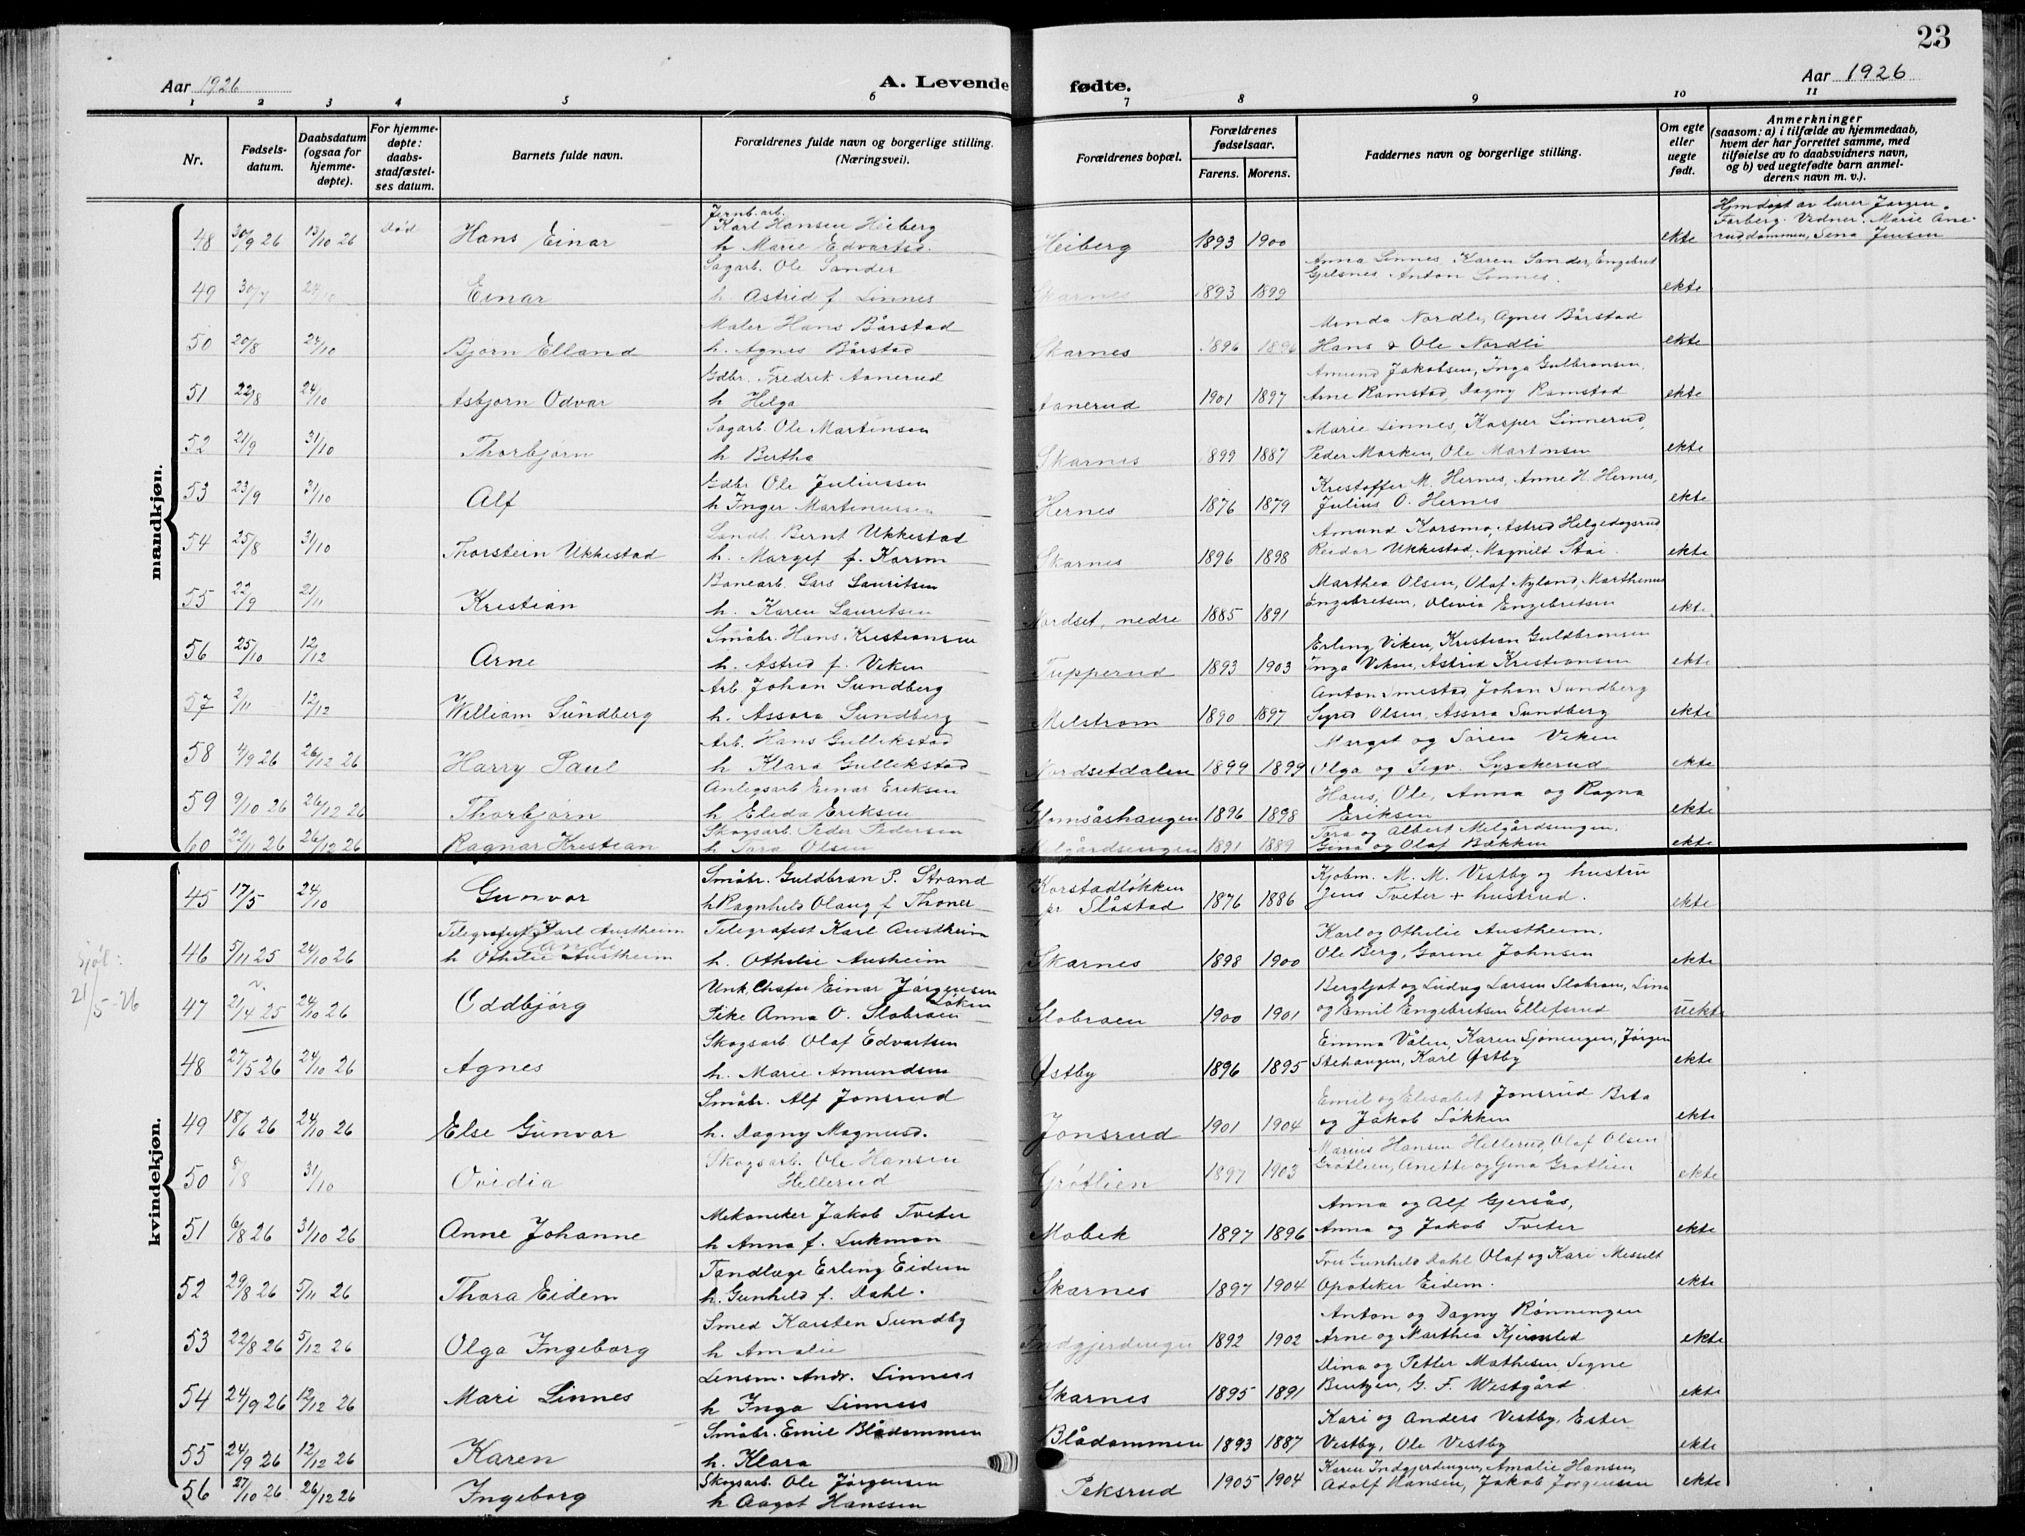 23
Aar 1926 A. Levende fødte. Aar 1926
1 2 3 4 5 6 7 8 9 10 11
Nr. Fødsels-datum. Daabsdatum (ogsaa for hjemme-døpte). For hjemme-døpte: daabs-stadfæstel-ses datum. Barnets fulde navn. Forældrenes fulde navn og borgerlige stilling. (Næringsvei). Forældrenes bopæl. Forældrenes fødselsaar. Farens. Morens. Faddernes navn og borgerlige stilling. Om egte eller uegte født. Anmerkninger (saasom: a) i tilfælde av hjemmedaab, hvem der har forrettet samme, med tilføielse av to daabsvidners navn, og b) ved uegtefødte barn anmel-derens navn m. v.).
mandkjøn.
Jernb.arb. Hjmdøpt av lærer Jørgen
48 30/9 26 13/10 26 Død Hans Einar Karl Hansen Heiberg Farberg. Vidner: Marie Ane-
h. Marie Edvartsd. Heiberg 1893 1900 ekte ruddammen, Sena Jensen
Sagarb. Ole Sander Anna Linnes, Karen Sander, Engebret
49 30/7 24/10 Einar h. Astrid f. Linnes Skarnes 1893 1899 Gjelsnes Anton Linnes. ekte
Maler Hans Bårstad Nordli, Agnes Bårstad
50 20/8 24/10 Bjørn Elland h. Agnes Bårstad Skarnes 1896 1896 Hans & Ole Nordli ekte
Gdbr. Fredrik Aanerud Amund Jakobsen, Inga Gulbransen,
51 22/8 24/10 Asbjørn Odvar h Helga Aanerud 1901 1897 Arne Ramstad, Dagny Ramstad ekte
Sagarb. Ole Martinsen Marie Linnes, Kasper Linnerud,
52 21/9 31/10 Thorbjørn h Bertha Skarnes 1899 1887 Peder Marken, Ole Martinsen ekte
Gdbr Ole Juliussen Kristoffer M. Hernes, Anne H. Hernes,
53 23/9 31/10 Alf h Inger Martinussen Hernes 1876 1879 Julius O. Hernes ekte
Landh. Bernt Ukkestad Amund Korsmo, Astrid Helgedagsrud
54 25/8 31/10 Thorstein Ukkestad h. Margit f. Korsm Skarnes 1896 1898 Reidar Ukkestad, Magnild Stai. ekte
Banearb. Lars Lauritsen Marthea Olsen, Olaf Nyland, Marthinus
55 22/9 21/11 Kristian h. Karen Lauritsen Nordset, nedre 1885 1891 Engebretsen, Olivia Engebretsen ekte
Småbr. Hans Kristiansen Erling Viken, Kristian Guldbransen
56 25/10 12/12 Arne h. Astrid f. Viken Tupperud 1893 1903 Inga Viken, Astrid Kristiansen ekte
Arb. Johan Sundberg Anton Smestad, Johan Sundberg
57 2/11 12/12 William Sundberg h. Assora Sundberg Milstrøm 1890 1897 Sigrid Olsen, Assora Sundberg ekte
Arb. Hans Gullikstad Margit og Søren Viken
58 4/9 26 26/12 26 Harry Paul h Klara Gullikstad Nordsetdalen 1899 1899 Olga og Sigv. Lysakerud ekte
Anlegsarb Einar Eriksen Hans, Ole, Anna og Ragna
59 9/10 26 26/12 26 Thorbjørn h Elida Eriksen Glomsåshaugen 1896 1898 Eriksen ekte
Skogsarb Peder Pedersen Tora og Albert Milgårdsengen,
60 22/11 26 26/12 26 Ragnar Kristian h Tora Olsen Milgårdsengen 1891 1889 Gina og Olaf Bækken ekte
kvindekjøn.
Småbr. Guldbran P. Strand Korstadløkken Kjøbm. M. M. Vestby og hustru
45 17/5 24/10 Gunvor h Ragnhild Olaug f. Thoner pr Slåstad 1876 1886 Jens Tveter + hustrud. ekte
Telegrafist Karl Austheim Telegrafist Karl Austheim Karl og Othilie Austheim.
46 5/11 25 24/10 26 h Othilie Austheim h. Othilie Ausheim Skarnes 1898 1900 Ole Berg, Gorine Johnsen ekte
21/5-26
Unk. Chafør Einar Jørgensen Løken Bergljot og Ludvig Larsen Slobraen, Lina
47 21/4 25 24/10 26 Oddbjørg Pike Anna O. Slobraen Slobraen 1900 1901 og Emil Engebretsen Ellefsrud uekte
Skogsarb. Olaf Edvartsen Emma Vålin, Karen Sjøningen, Jørgen
48 27/5 26 24/10 26 Agnes h. Marie Amundsen Østby 1896 1895 Stehaugen, Karl Østby ekte
Småbr. Alf Jonsrud Emil og Elisabet Jonsrud Brta
49 18/6 26 24/10 26 Else Gunvor h. Dagny Magnusd. Jonsrud 1901 1904 og Jakob Løkken ekte
Skogsarb. Ole Hansen Marius Hansen Hellerud, Olaf Olsen
50 8/8 31/10 Ovidia Hellerud Grøtlien 1897 1903 Grøtlien, Anette og Gina Grøtlien ekte
Mekaniker Jakob Tveter Anna og Alf Gjersås,
51 6/8 26 31/10 26 Anne Johanne h Anna f. Lukman Mobæk 1897 1896 Anna og Jakob Tveter ekte
Tandlæge Erling Eidem Fru Gunhild Dahl Olaf og Kari Messelt
52 29/8 26 5/11 26 Thora Eidem h. Gunhild f. Dahl. Skarnes 1897 1904 Opoteker Eidem. ekte
Smed Karsten Sundby Anton og Dagny Rønningen
53 22/8 26 5/12 26 Olga Ingeborg h Amalie Indgjerdingen 1892 1902 Arne og Marthea Kjernslid ekte
Lensm. Andr. Linness Dina og Petter Mathisen Signe
54 24/9 26 12/12 26 Mari Linnes h Inga Linness Skarnes 1895 1891 Bentzen, G. F. Westgård ekte
Småbr. Emil Blådammen Kari og Anders Vestby, Ester
55 24/9 26 12/12 26 Karen h. Klara Blådammen 1893 1887 Vestby, Ole Vestby ekte
Skogsarb. Ole Jørgensen Karen Indgjerdingen, Amalie Hansen,
56 27/10 26 26/12 26 Ingeborg h Aagot Hanssen Peksrud 1905 1904 Adolf Hansen, Jakob Jørgensen ekte